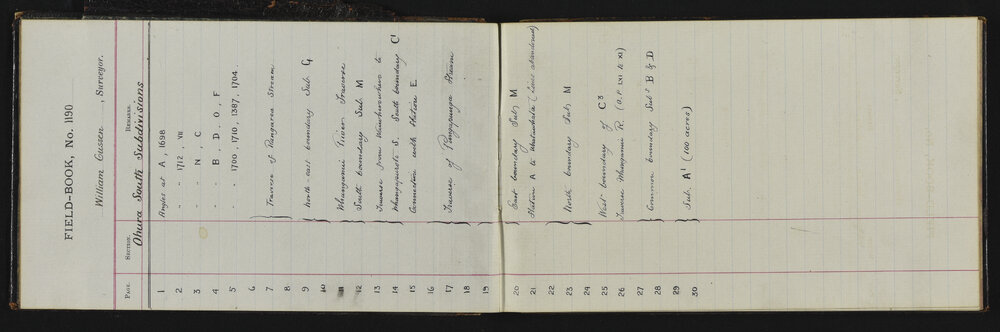 FIELD-BOOK, No. 1190
William Cussen, Surveyor.
PAGE. SECTION. REMARKS.
Ohura South Subdivisions
1 Angles at A, 1698
2 " " 1712, VII
3 " " N, C
4 " " B, D, O, F
5 " " 1700, 1710, 1387, 1704
6
7 Traverse of Rangaroa Stream
8
9 North-east boundary Sub. G
10
11 Whanganui River Traverse
12 South boundary Sub. M
13 Traverse from to
14 S. South boundary C
15 Connection with Station E
16
17 Traverse of Pungapunga Stream
18
19
20 East boundary Sub. M
21 Station A to (Line abandoned)
22
23 North boundary Sub. M
24
25 West boundary of C3
26 Traverse Whanganui R. (O.P. LXI to XI)
27
28 Common boundary Subs B & D
29 Sub. A1 (100 acres)
30